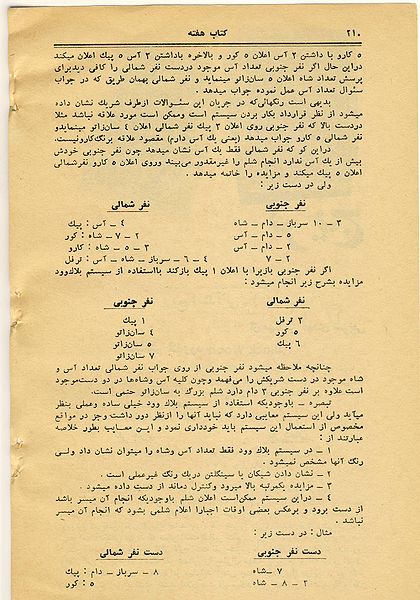 ۲۱۰ کتاب هفته
۵ کارو یا داشتن ۲ آس اعلان ۵ کور و بالاخره باداشتن ۳ آس ۵ پیک اعلان میکند
دراین حال اگر نفر جنوبی تعداد آس موجود دردست نفر شمالی را کافی دیدبرای
پرسش تعداد شاه اعلان ۵ سان‌زاتو مینماید و نفر شمالی بهمان طریق که در جواب
سئوال تعداد آس عمل نموده جواب میدهد.
بدیهی است رنگهائی‌که در جریان این سئوالات ازطرف شریک نشان داده
میشود از نظر قرارداد بکار بردن سیستم است وممکن است مورد علاقه نباشد مثلا
دردست بالا که نفر جنوبی روی اعلان ۳ پیک نفر شمالی اعلان ۴ سان‌زاتو مینمایدو
نفر شمالی ۵ کارو جواب میدهد (یعنی یک آس دارم) مقصود علاقه برنگ‌کارونیست.
دراین کو که نفر شمالی فقط یک آس نشان میدهد چون نفر جنوبی خودش
بیش از یک آس ندارد انجام شلم را غیرمقدور می‌بیند وروی اعلان ۵ کارو نفرشمالی
اعلان ۵ پیک میکند و مزایده را خاتمه میدهد.
ولی در دست زیر :
نفر جنوبی نفر شمالی
۳ – ۱۰ سرباز – دام – شاه ۴ – آس : پیک
۵ – دام – آس ۲ – ۷ – شاه : کور
۲ – دام – آس ۳ – ۵ – شاه : کارو
۲ – ۷ ۴ – ۶ – سرباز – شاه – آس : ترفل
اگر نفر جنوبی بازیرا با اعلان ۱ پیک بازکند بااستفاده از سیستم بلاک‌وود
مزایده بشرح زیر انجام میشود :
نفر شمالی نفر جنوبی
۱ پیک
۳ ترفل ۴ سان‌زاتو
۵ کور ۵ سان‌زاتو
۶ پیک ۷ سان‌زاتو
چنانچه ملاحظه میشود نفر جنوبی از روی جواب نفر شمالی تعداد آس و
شاه موجود در دست شریکش را می‌فهمد وچون کلیه آس وشاه‌ها در دو دست‌موجود
است علاوه بر نفر جنوبی ۳ دام دارد شلم بزرگ به سان‌زاتو حتمی است.
تبصره – باوجودیکه استفاده از سیستم بلاک وود خیلی ساده وعملی بنظر
میآید ولی این سیستم معایبی دارد که نباید آنها را ازنظر دور داشت وجز در مواقع
مخصوص از استعمال این سیستم باید خودداری نمود و این معایب بطور خلاصه
عبارتند از :
۱ – در سیستم بلاک وود فقط تعداد آس وشاه را میتوان نشان داد ولی
رنگ آنها مشخص نمیشود.
۲ – نشان دادن شیکان یا سینگلتن دریک رنگ غیرعملی است .
۳ – مزایده یکمرتبه بالا میرود وکنترل دماند از دست داده میشود.
۴ – دراین سیستم ممکن‌است اعلان شلم باوجودیکه انجام آن میسر باشد
از دست برود و برعکس بعضی اوقات اجبارا اعلام شلمی بشود که انجام آن میسر
نباشد .
مثال : در دست زیر :
دست نفر جنوبی دست نفر شمالی
۷ – شاه ۸ – سرباز – دام : پیک
۲ – ۸ – شاه ۵ : کور